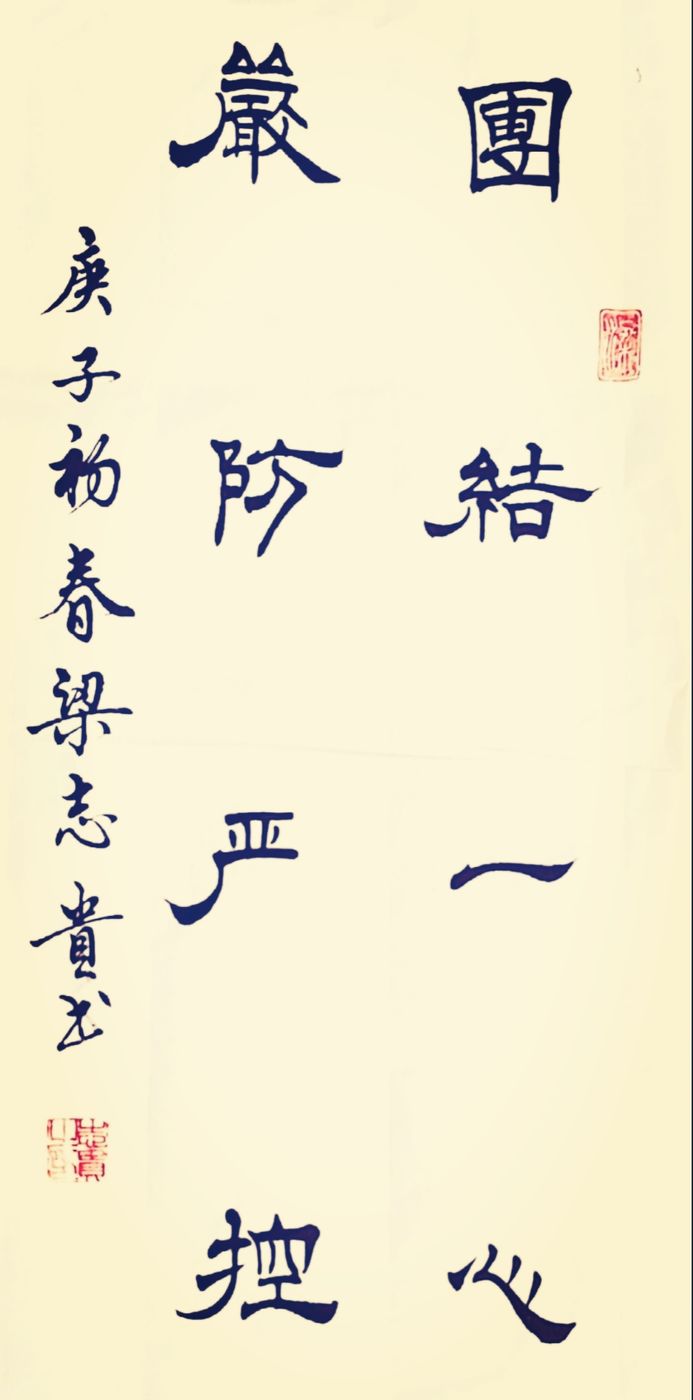 團結一心
嚴防严控
庚子初春梁志貴书